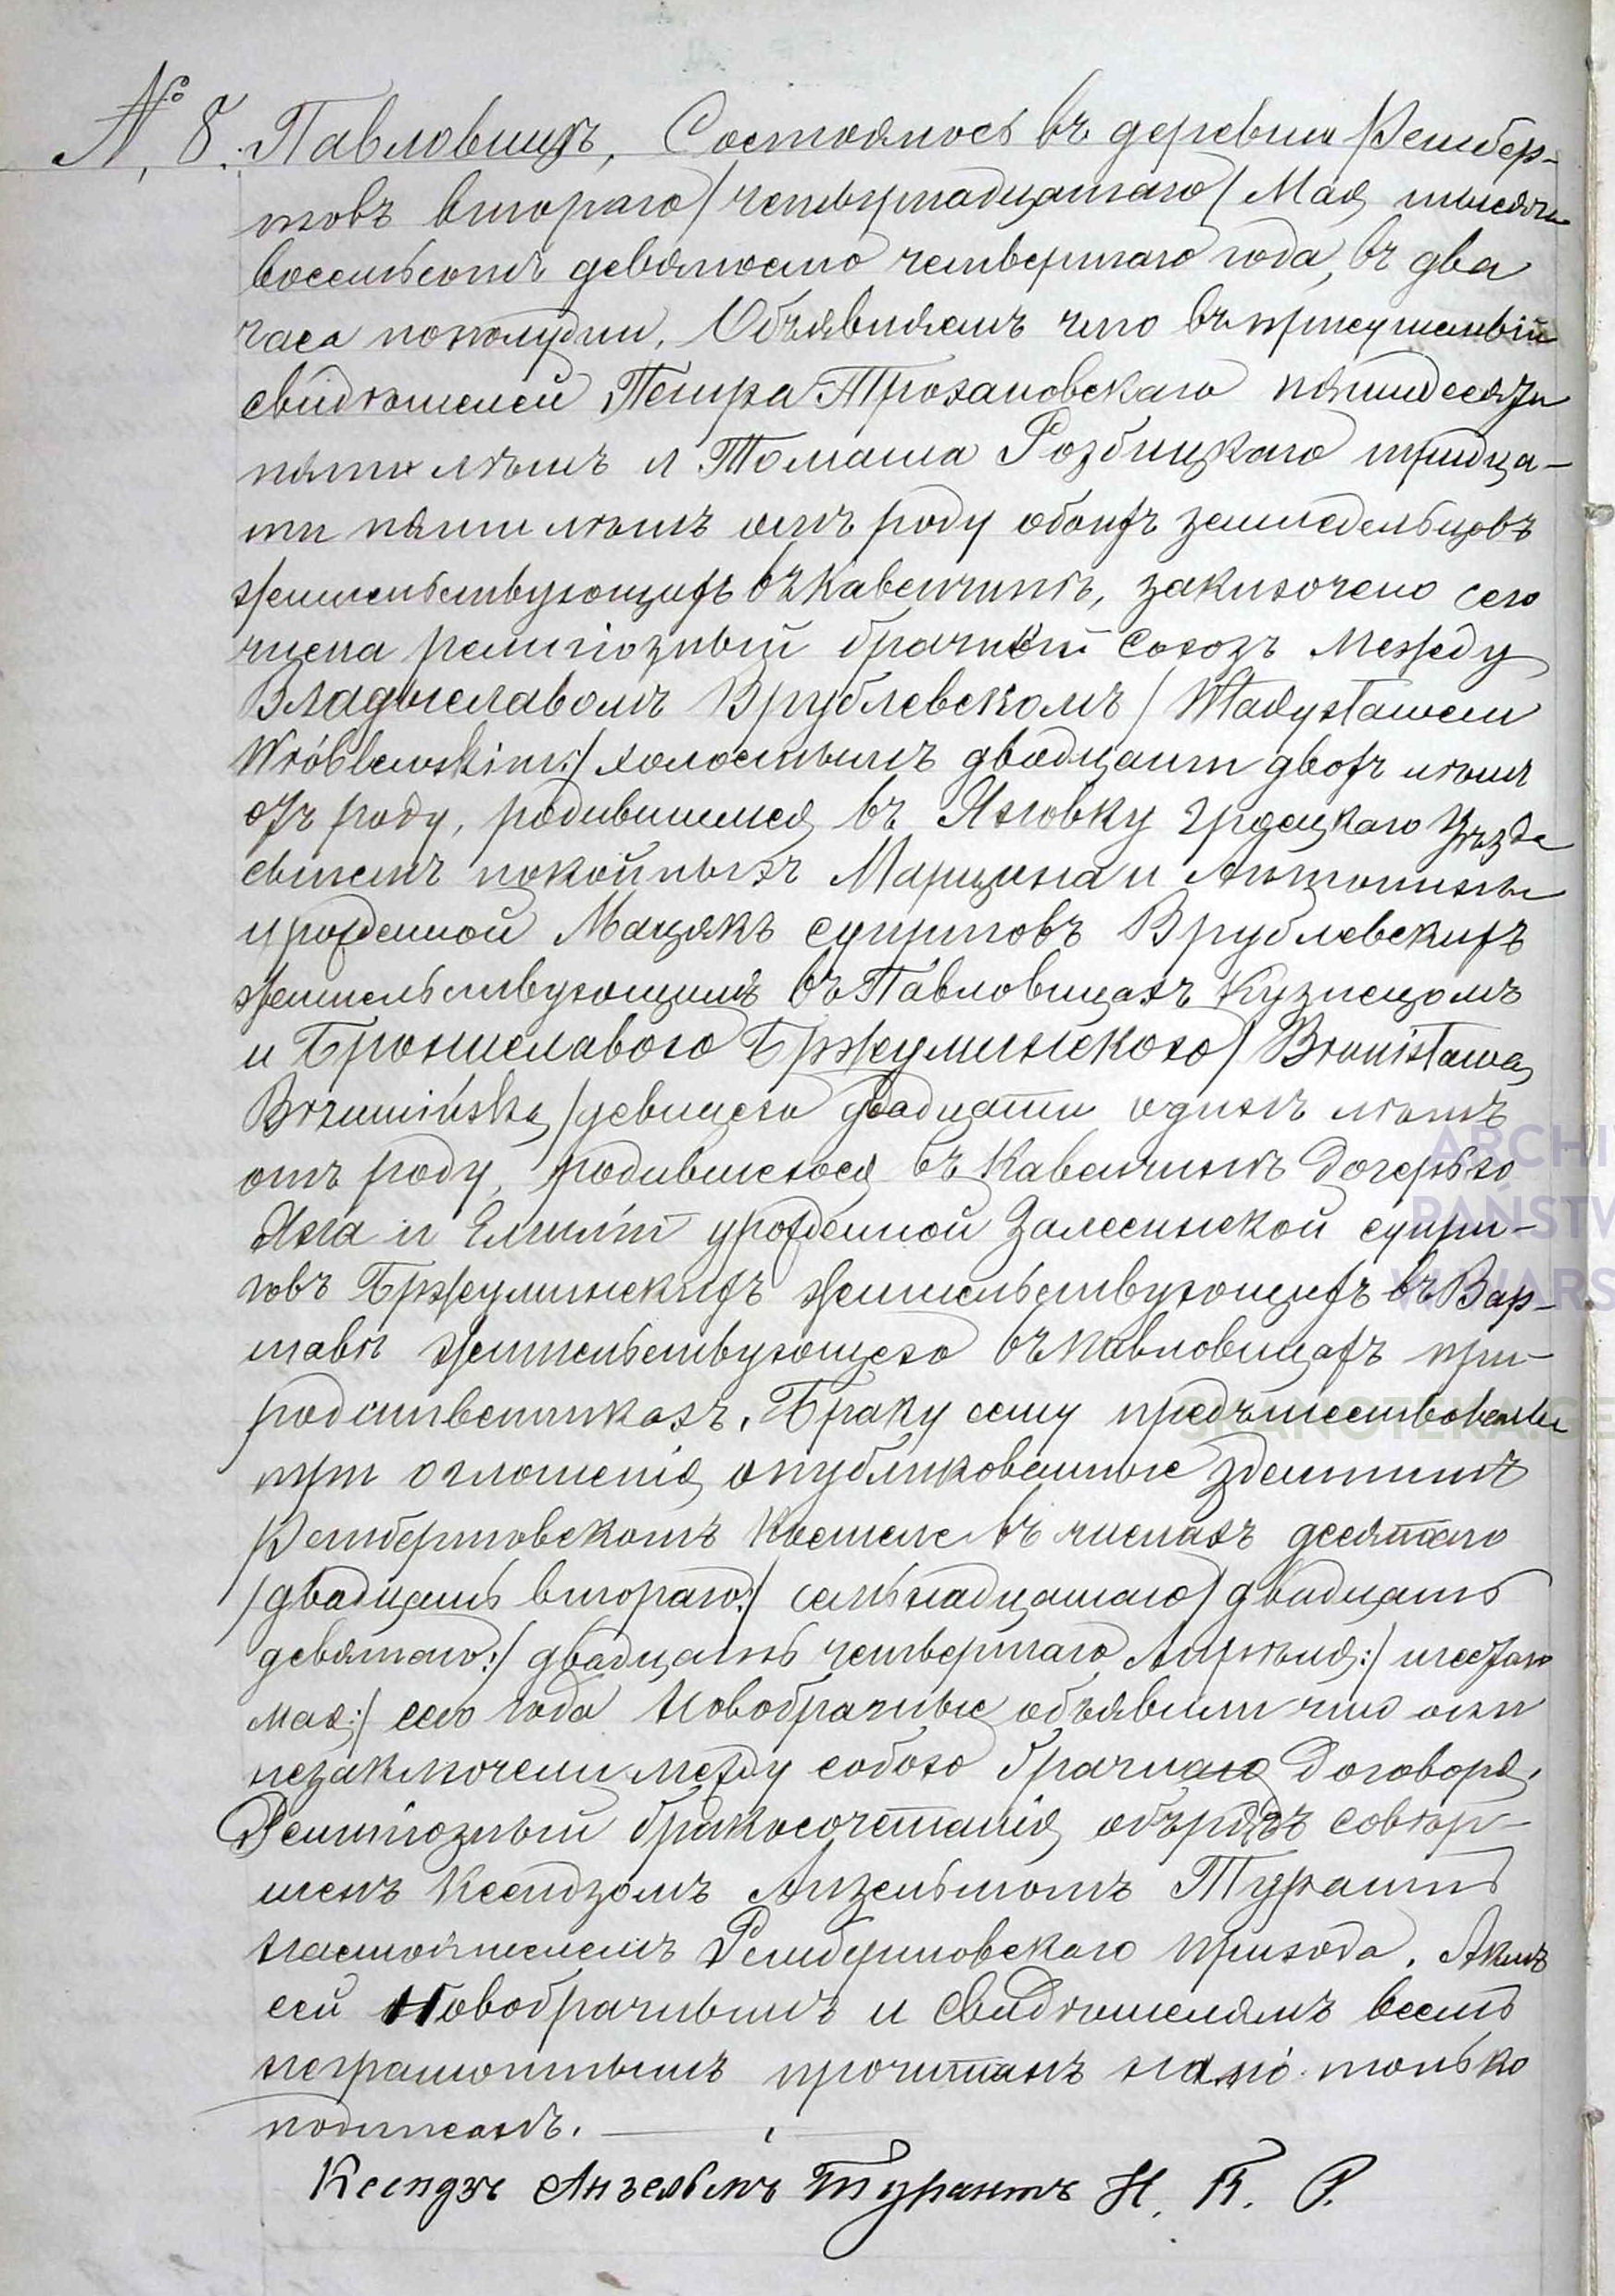 № 8. Павловицъ, Состоялось въ деревни Рембер-
товъ втораго/четырнадцатаго/Мая тысяча
восемьсотъ девяносто четвертаго года, въ два
часа пополудни, Объявляемъ что въ присутствіи
свидѣтелей Петра Трояновскаго пятидесяти
пяти лѣтъ и Томаша Розбицкаго тридца-
ти пяти лѣтъ отъ роду обоихъ земледельцовъ
жительствующихъ въ Кавенчинѣ, заключено сего
числа религіозный брачный союзъ между
Владыславомъ Врублевскомъ/Władysławem
Wróblewskim:/холостымъ двадцати двохъ лѣтъ
отъ роду, родившимся въ Яновку Гроецкаго Уѣзда
сыномъ покойныхъ Марцина и Антонины
урожденной Мацякъ супруговъ Врублевскихъ
жительствующимъ въ Павловицахъ Кузнецомъ
и Брониславою Бржуминскою/Bronisławą
Brzumińską/девицею двадцати однэмъ лѣтъ
отъ роду, родившеюся въ Кавенчинѣ дочерью
Яна и Емиліи урожденной Залесинской супру-
говъ Бржуминскихъ жительствующихъ въ Вар-
шавѣ жительствующею въ Павловицахъ при
родственникахъ. Браку сему предъшествовали
три оглошенія опубликованные здешнимъ
Рембертовскомъ Костеле въ числахъ десятаго
/двадцать втораго:/семьнадцатаго/двадцать
девятаго:/двадцать четвертаго Апрѣля:/шестаго
мая:/сего года Новобрачные объявили что они
незаключели между собою брачнаго договора.
Религіозный бракосочетанія обърядъ совѣр-
шенъ Ксендзомъ Анзельмомъ Турантъ
настоятелемъ Рембертовскаго прихода. Актъ
сей Новобрачнымъ и Свидѣтелямъ всемъ
неграмотнымъ прочитанъ нами только
подписанъ.
Ксендзъ Анзельмъ Турантъ Н. Р. П.